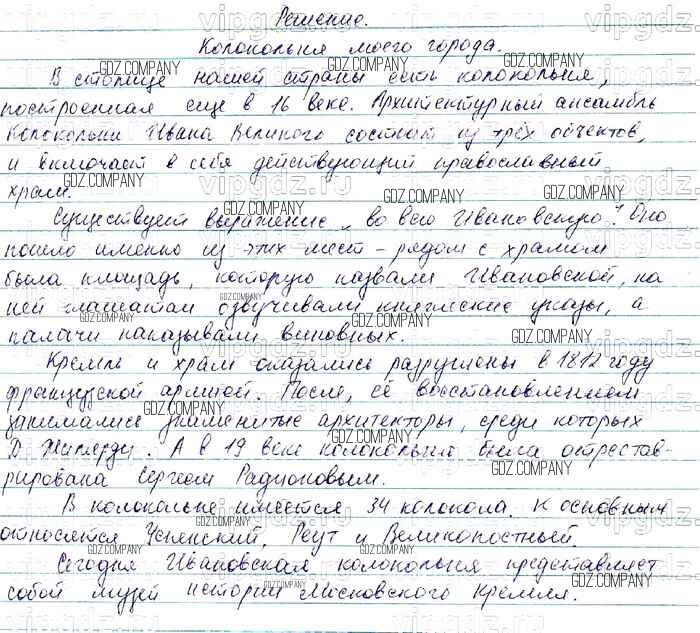 Решение.
Колокольня моего города.
В столице нашей страны есть колокольня,
построенная еще в 16 веке. Архитектурный ансамбль
колокольни Ивана Великого состоит из трёх объектов,
и включает в себя действующий православный
храм.
Существует выражение „во всю Ивановскую". Оно
пошло именно из этих мест – рядом с храмом
была площадь, которую назвали Ивановской, на
ней глашатаи озвучивали княжеские указы, а
палачи наказывали виновных.
Кремль и храм оказались разрушены в 1812 году
французской армией. После, её восстановлением
занимались знаменитые архитекторы, среди которых
Д. Жилярди. А в 19 веке колокольня была отрестав-
рирована Сергеем Радионовым.
В колокольне имеется 34 колокола. К основным
относятся Успенский, Реут и Великопостный.
Сегодня Ивановская колокольня представляет
собой музей истории Московского Кремля.